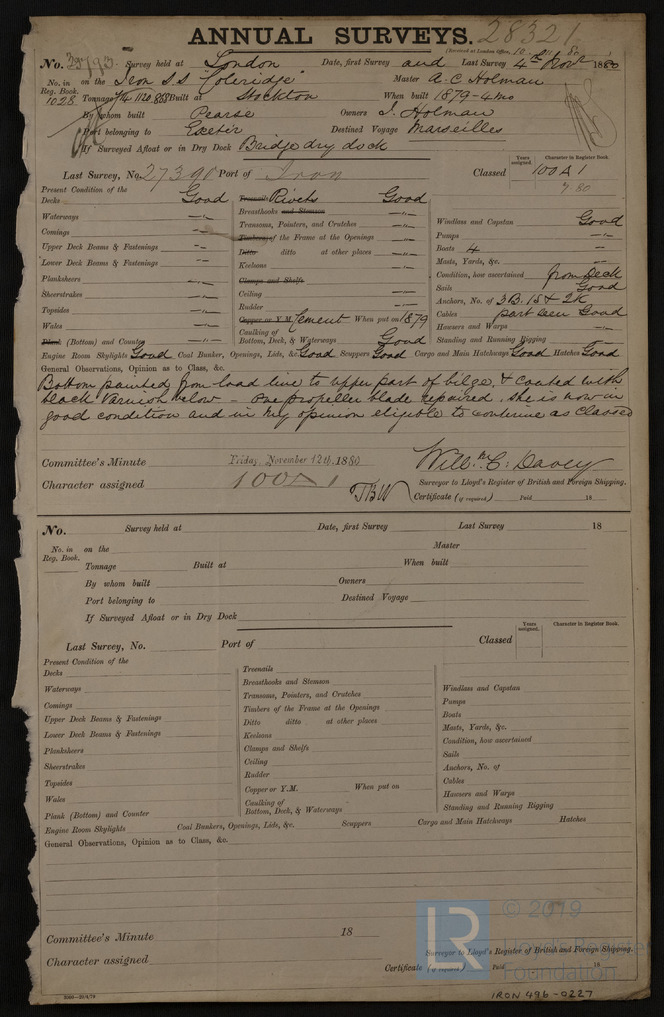 ANNUAL SURVEYS. 28321
(Received at London Office, 10 80
No. Survey held at London Date, first Survey and Last Survey 4th Novr 1880
No. in Reg. Book. on the Iron S.S "Coleridge" Master A. C Holman
1028 Tonnage Built at Stockton When built 1879-4mo
By whom built Pearse Owners J. Holman
Port belonging to Exeter Destined Voyage Marseilles
If Surveyed Afloat or in Dry Dock Bridge dry dock
Last Survey, No. 27390 Port of Iron Classed
Years assigned. Character in Register Book.
100A1
7.80
Present Condition of the
Decks Good
Waterways —"—
Comings —"—
Upper Deck Beams & Fastenings —"—
Lower Deck Beams & Fastenings —"—
Planksheers —"—
Sheerstrakes —"—
Topsides —"—
Wales —"—
Plank (Bottom) and Counter —"—
Treenails Rivets Good
Breasthooks and Stemson —"—
Transoms, Pointers, and Crutches —"—
Timbers of the Frame at the Openings —"—
Ditto ditto at other places —"—
Keelsons —"—
Clamps and Shelfs
Ceiling —"—
Rudder —"—
Copper or Y.M. Cement When put on 1879
Caulking of Bottom, Deck, & Waterways Good
Windlass and Capstan Good
Pumps —"—
Boats 4 —
Masts, Yards, &c. —"—
Condition, how ascertained from deck
Sails Good
Anchors, No. of 3B. 1S & 2K
Cables part seen Good
Hawsers and Warps —"—
Standing and Running Rigging —"—
Engine Room Skylights Good Coal Bunker, Openings, Lids, &c. Good Scuppers Good Cargo and Main Hatchways Good Hatches Good
General Observations, Opinion as to Class, &c.
Bottom painted from load line to upper part of bilge, & coated with
black varnish below – one propeller blade repaired. She is now in
good condition and in my opinion eligible to continue as classed
Committee's Minute Friday November 12th. 1880
Character assigned 100A1
TBW
Willm C. Davey
Surveyor to Lloyd's Register of British and Foreign Shipping.
Certificate (if required) Paid 18
No. Survey held at Date, first Survey Last Survey 18
No. in Reg. Book. on the Master
Tonnage Built at When built
By whom built Owners
Port belonging to Destined Voyage
If Surveyed Afloat or in Dry Dock
Last Survey, No. Port of Classed
Years assigned. Character in Register Book.
Present Condition of the
Decks
Waterways
Comings
Upper Deck Beams & Fastenings
Lower Deck Beams & Fastenings
Planksheers
Sheerstrakes
Topsides
Wales
Plank (Bottom) and Counter
Treenails
Breasthooks and Stemson
Transoms, Pointers, and Crutches
Timbers of the Frame at the Openings
Ditto ditto at other places
Keelsons
Clamps and Shelfs
Ceiling
Rudder
Copper or Y.M. When put on
Caulking of Bottom, Deck, & Waterways
Windlass and Capstan
Pumps
Boats
Masts, Yards, &c.
Condition, how ascertained
Sails
Anchors, No. of
Cables
Hawsers and Warps
Standing and Running Rigging
Engine Room Skylights Coal Bunkers, Openings, Lids, &c. Scuppers Cargo and Main Hatchways Hatches
General Observations, Opinion as to Class, &c.
Committee's Minute 18
Character assigned
Surveyor to Lloyd's Register of British and Foreign Shipping.
Certificate (if required) Paid 18
LR © 2019
Lloyd's Register
Foundation
IRON 496-0227